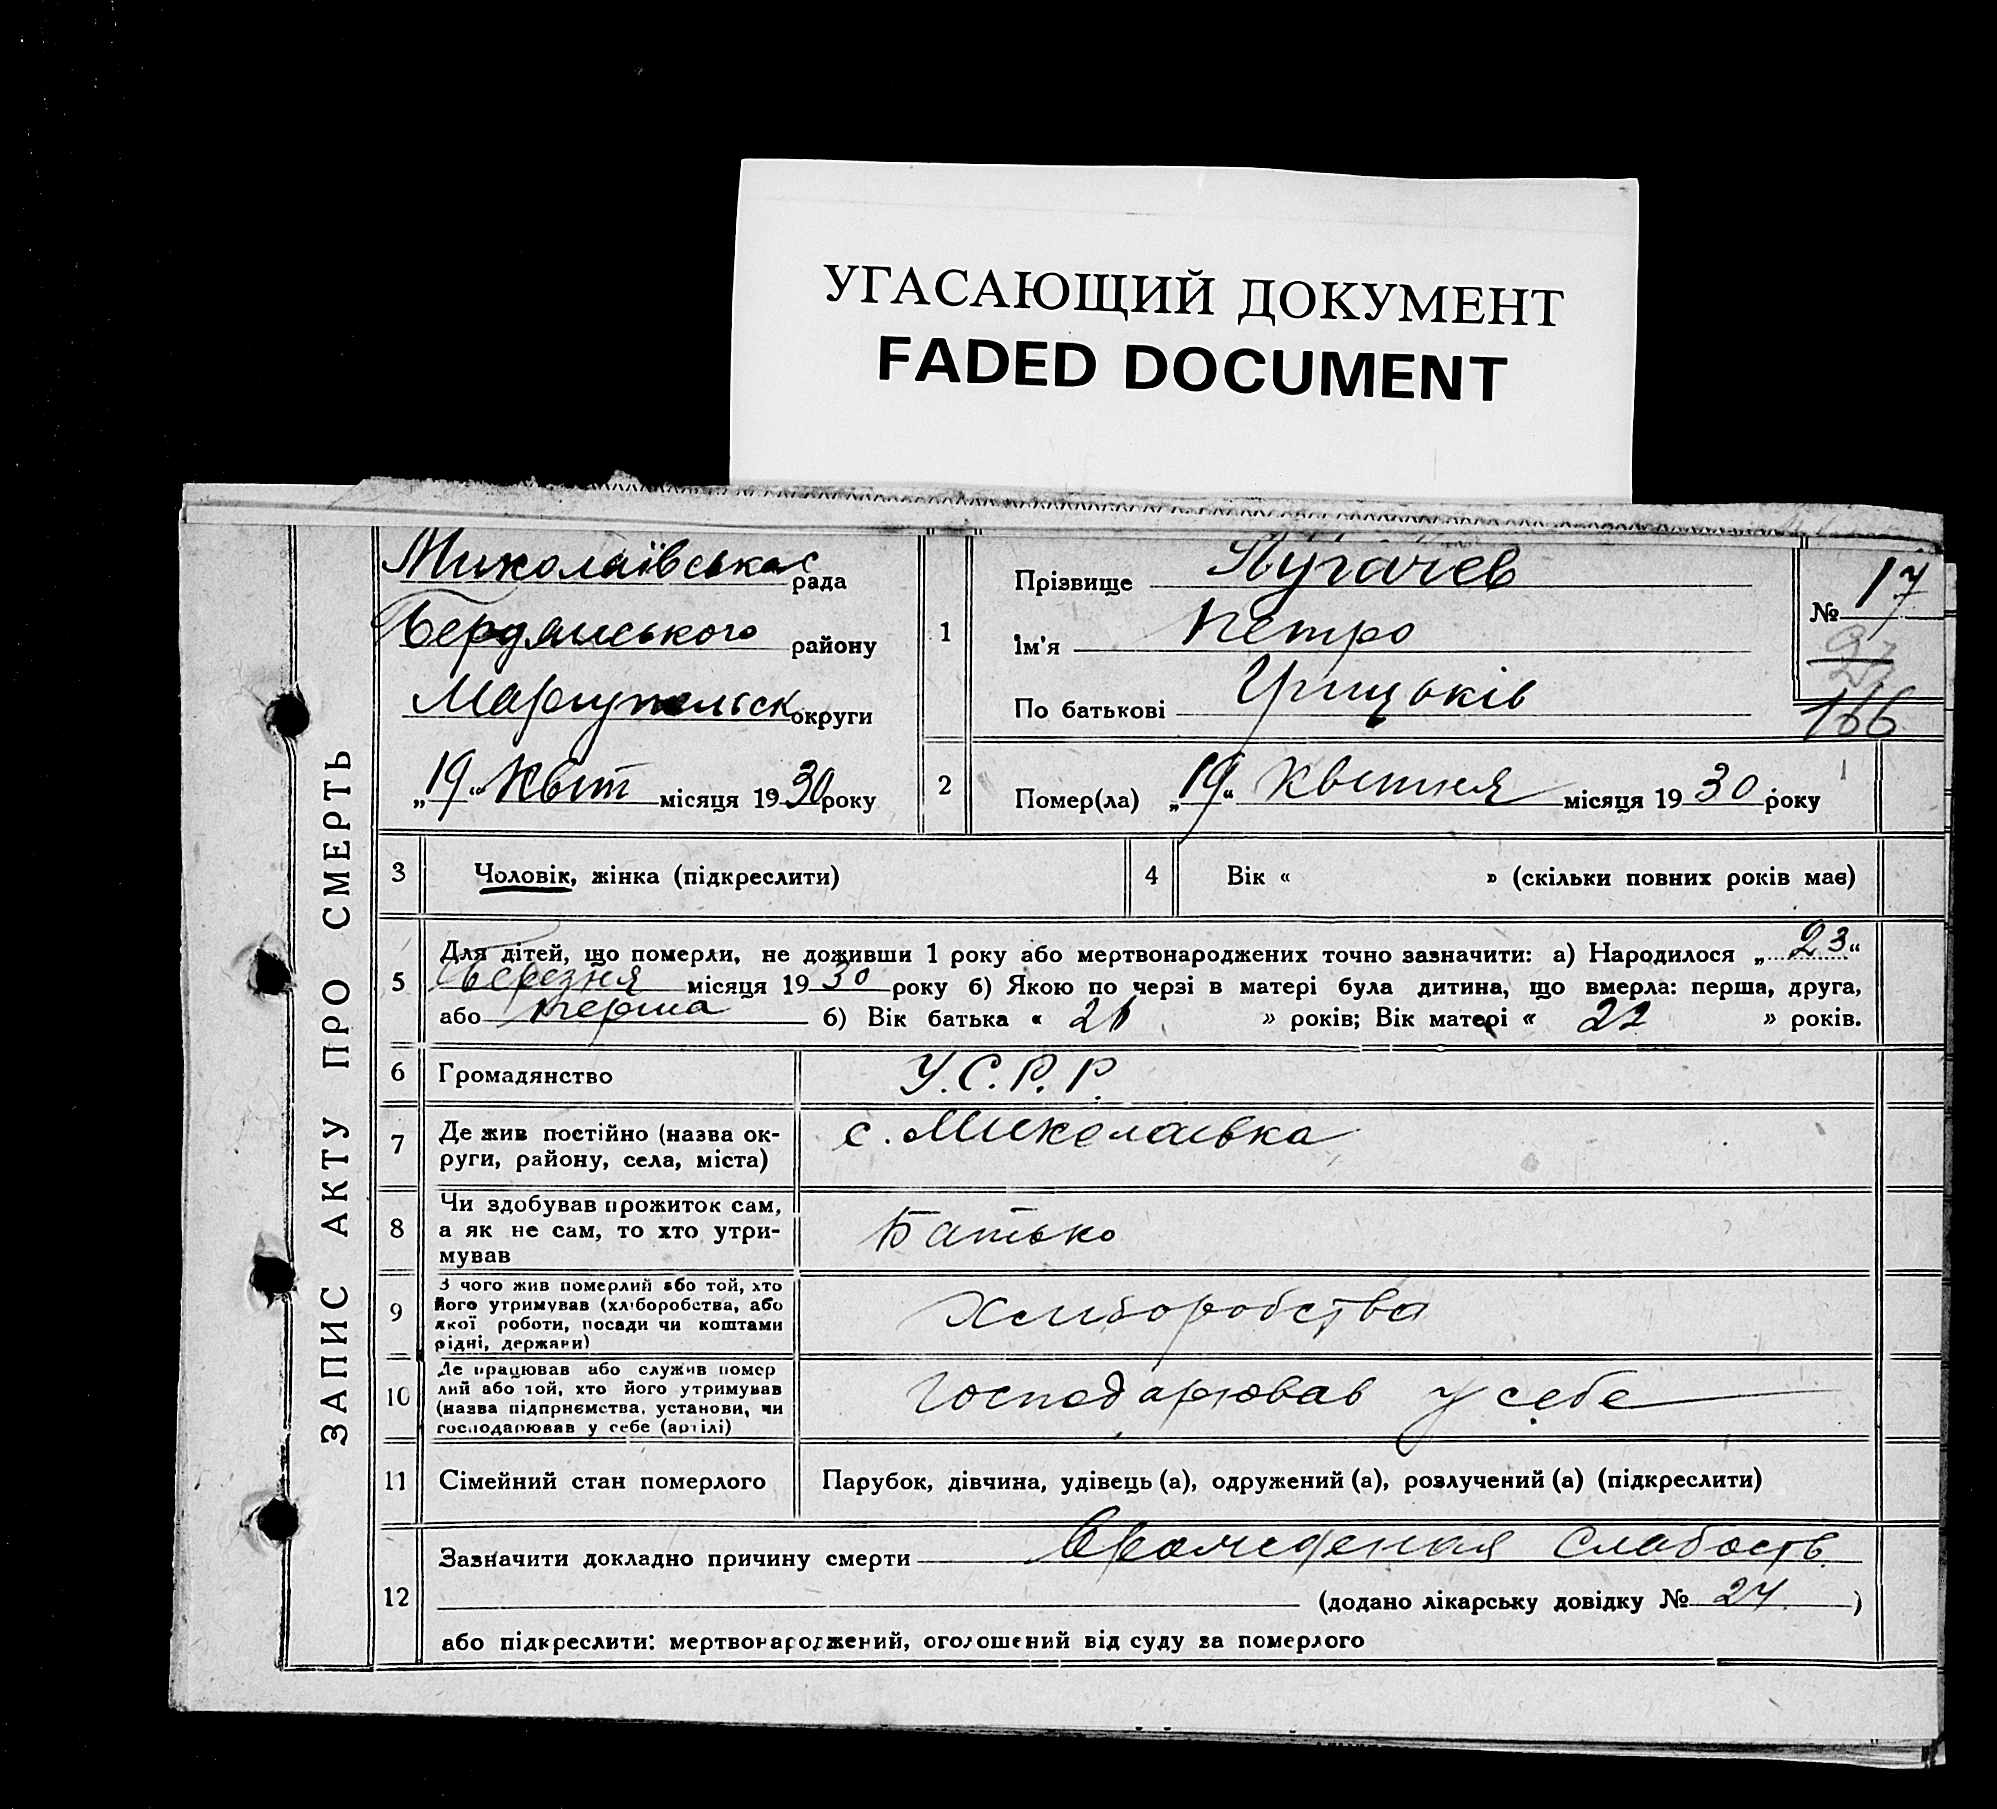 УГАСАЮЩИЙ ДОКУМЕНТ
FADED DOCUMENT
ЗАПИС АКТУ ПРО СМЕРТЬ
Миколаївська рада
Бердянського району
Маріупольськ округи
„19“ Квіт місяця 1930 року
1
Прізвище Пугачев
Ім'я Петро
По батькові Грицьків
№ 17
27
166
2
Помер(ла) „19“ Квітня місяця 1930 року
3
Чоловік, жінка (підкреслити)
4
Вік « » (скільки повних років має)
5
Для дітей, що померли, не доживши 1 року або мертвонароджених точно зазначити: а) Народилося „23“
Березня місяця 1930 року б) Якою по черзі в матері була дитина, що вмерла: перша, друга,
або перша б) Вік батька « 21 » років; Вік матері « 22 » років.
6
Громадянство У.С.Р.Р.
7
Де жив постійно (назва ок-
руги, району, села, міста)
с. Миколаівка
8
Чи здобував прожиток сам,
а як не сам, то хто утри-
мував
Батько
9
З чого жив померлий або той, хто
його утримував (хліборобства, або
якої роботи, посади чи коштами
рідні, держави)
Хліборобства
10
Де працював або служив помер
лий або той, хто його утримував
(назва підприємства, установи, чи
господарював у себе (артілі)
Господарював у себе
11
Сімейний стан померлого
Парубок, дівчина, удівець (а), одружений (а), розлучений (а) (підкреслити)
12
Зазначити докладно причину смерти Врожденная слабость
(додано лікарську довідку № 24. )
або підкреслити: мертвонароджений, оголошений від суду за померлого